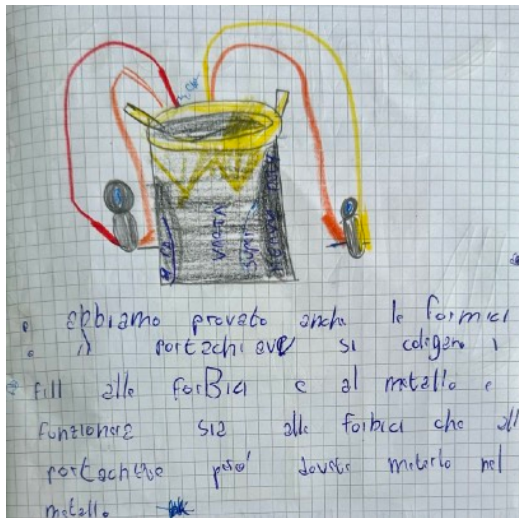 abbiamo provato anche le formici
il portachiave si colegano i
fili alle forBici e al metallo e
funzionerà sia alle forbici che all
portachieve però dovete meterlo nel
metallo